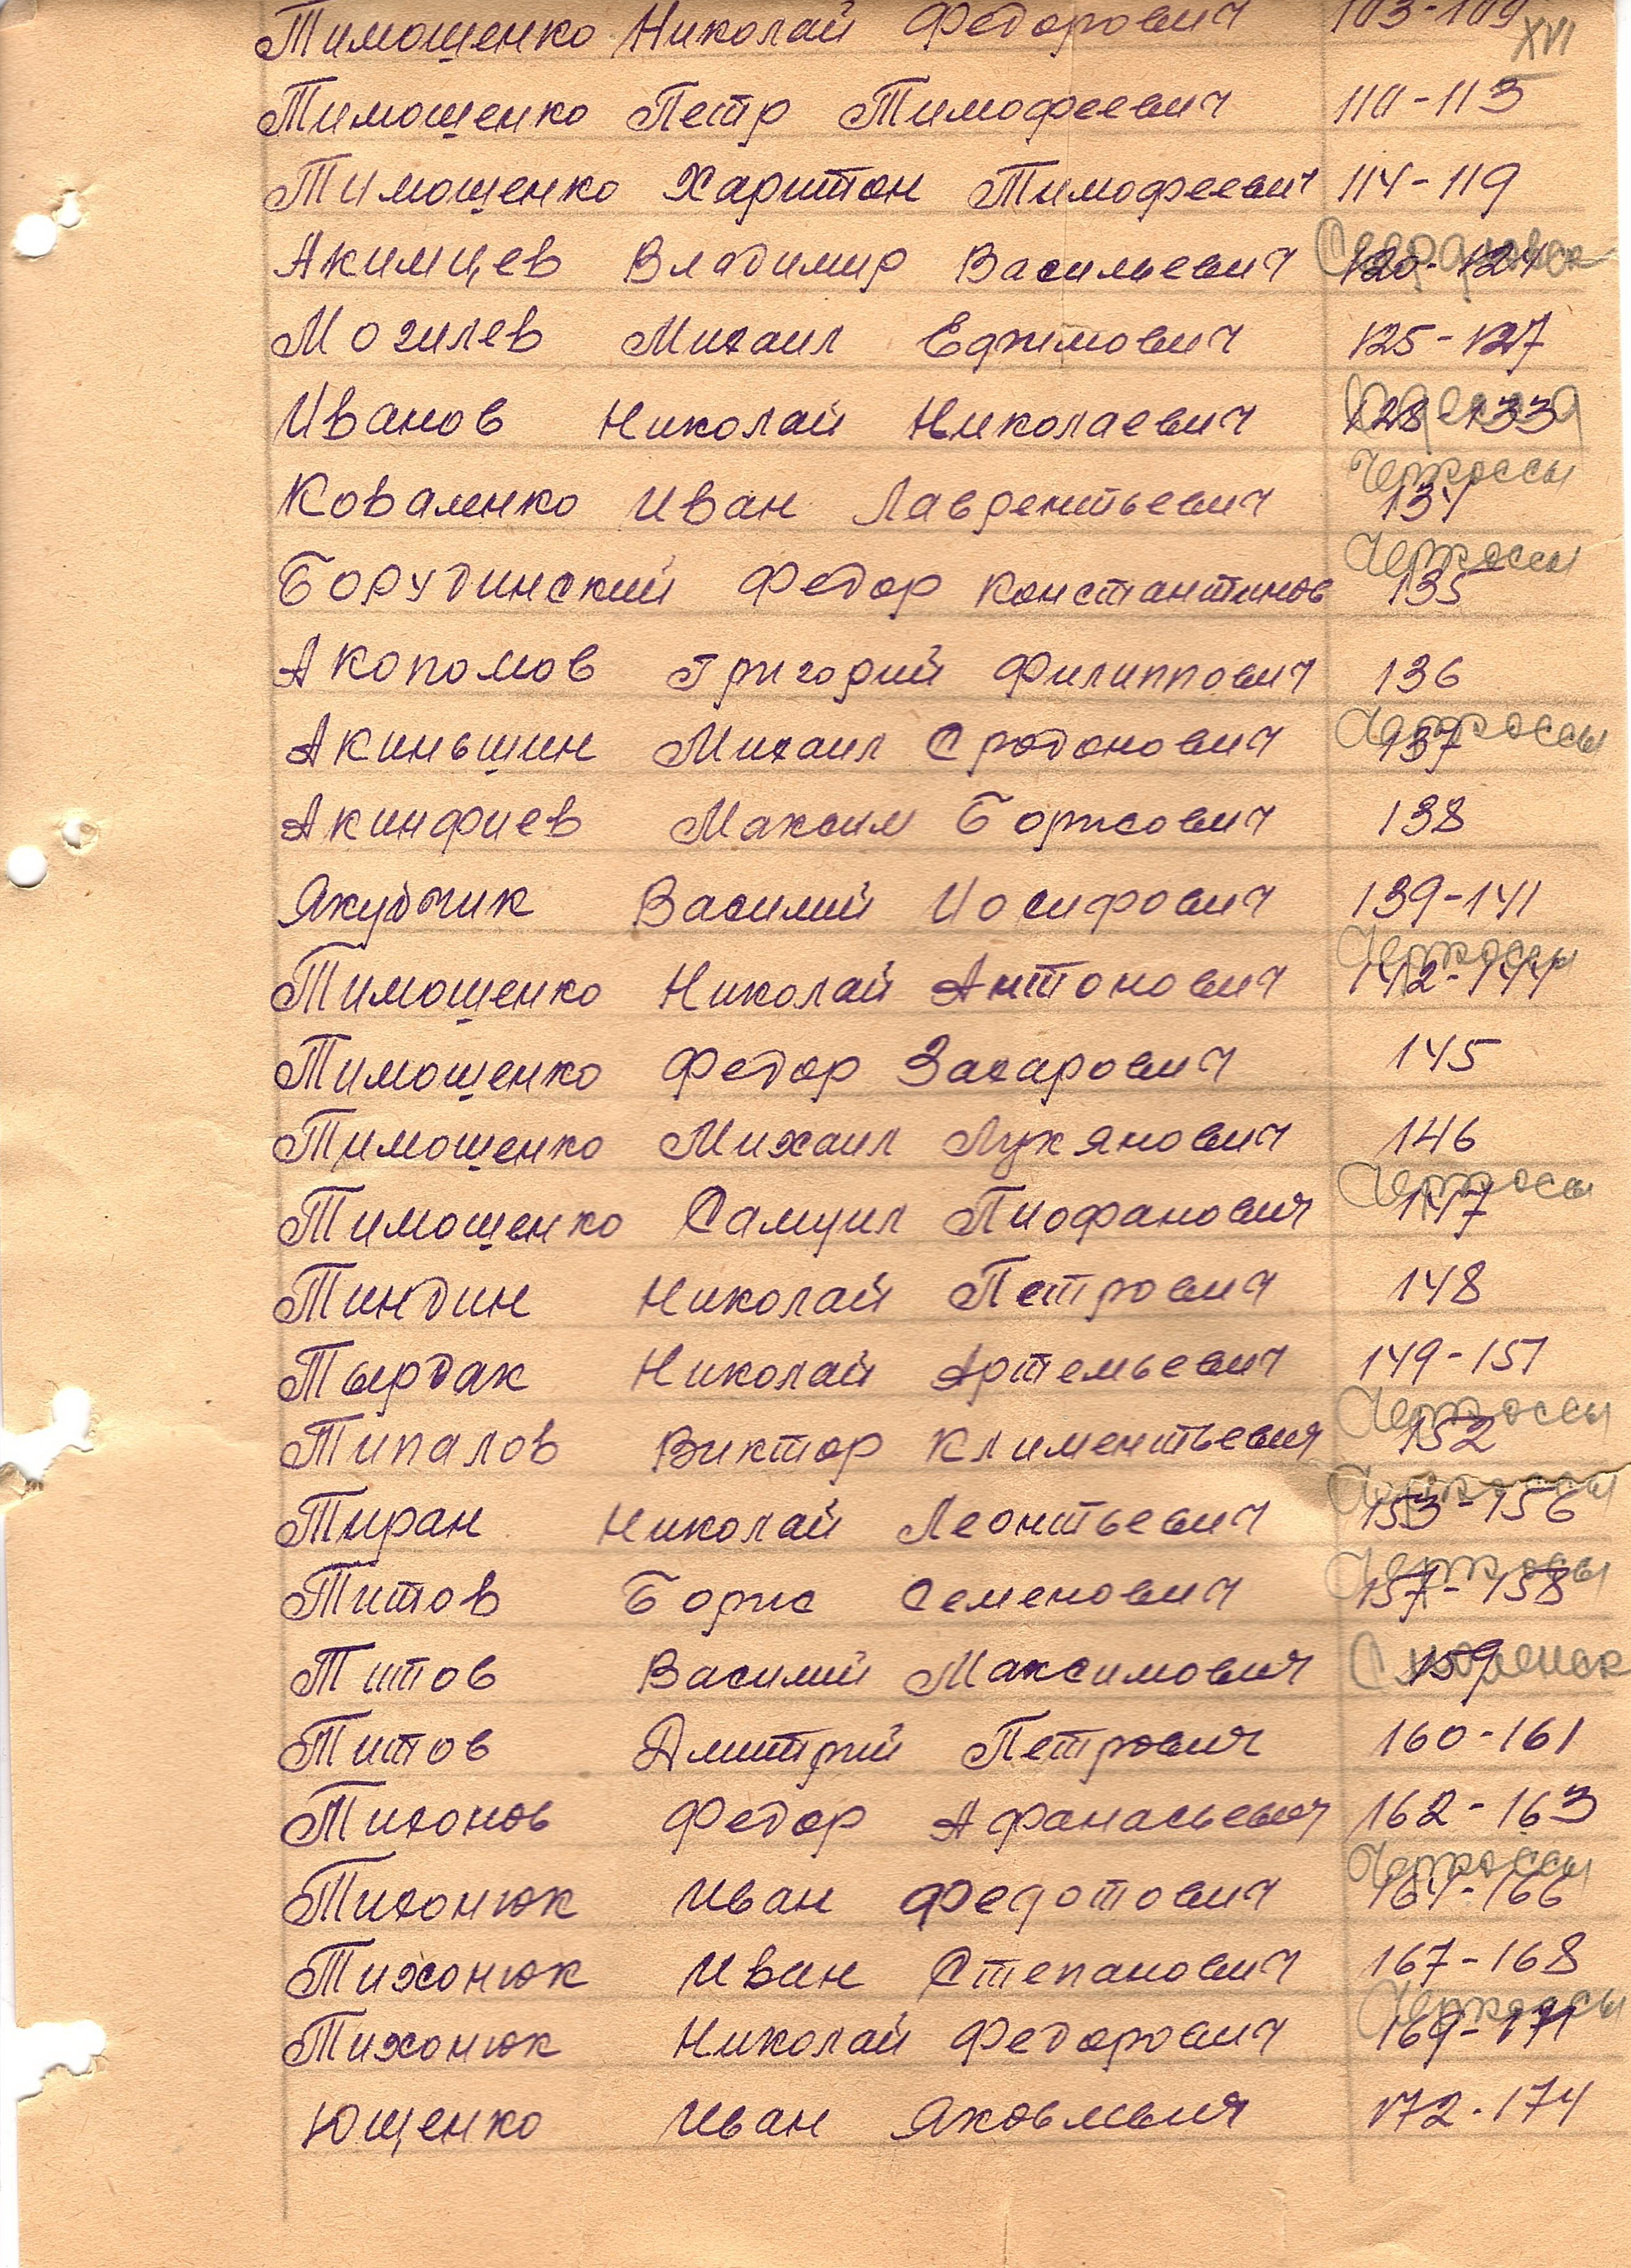 Тимошенко Николай Федорович 103-109
XVI
Тимошенко Петр Тимофеевич 110-113
Тимошенко Харитон Тимофеевич 114-119
Акимцев Владимир Васильевич 120-124
Могилев Михаил Ефимович 125-127
Иванов Николай Николаевич 128-133
Черкассы
Коваленко Иван Лаврентьевич 134
Черкассы
Борудинский Федор Константинов 135
Акопомов Григорий Филиппович 136
Черкассы
Акиньшин Михаил Сродонович 137
Акинфиев Максим Борисович 138
Якубчик Василий Иосифович 139-141
Черкассы
Тимошенко Николай Антонович 142-144
Тимошенко Федор Захарович 145
Тимошенко Михаил Лукянович 146
Черкассы
Тимошенко Самуил Пиофанович 147
Тиндин Николай Петрович 148
Тырдак Николай Артемьевич 149-151
Черкассы
Типалов Виктор Климентьевич 152
Черкассы
Тиран Николай Леонтьевич 153-156
Черкассы
Титов Борис Семенович 157-158
Титов Василий Максимович 159 Смоленск
Титов Дмитрий Петрович 160-161
Тихонов Федор Афанасьевич 162-163
Черкассы
Тихонюк Иван Федотович 164-166
Тихонюк Иван Степанович 167-168
Черкассы
Тихонюк Николай Федорович 169-171
Ющенко Иван Яковлевич 172-174